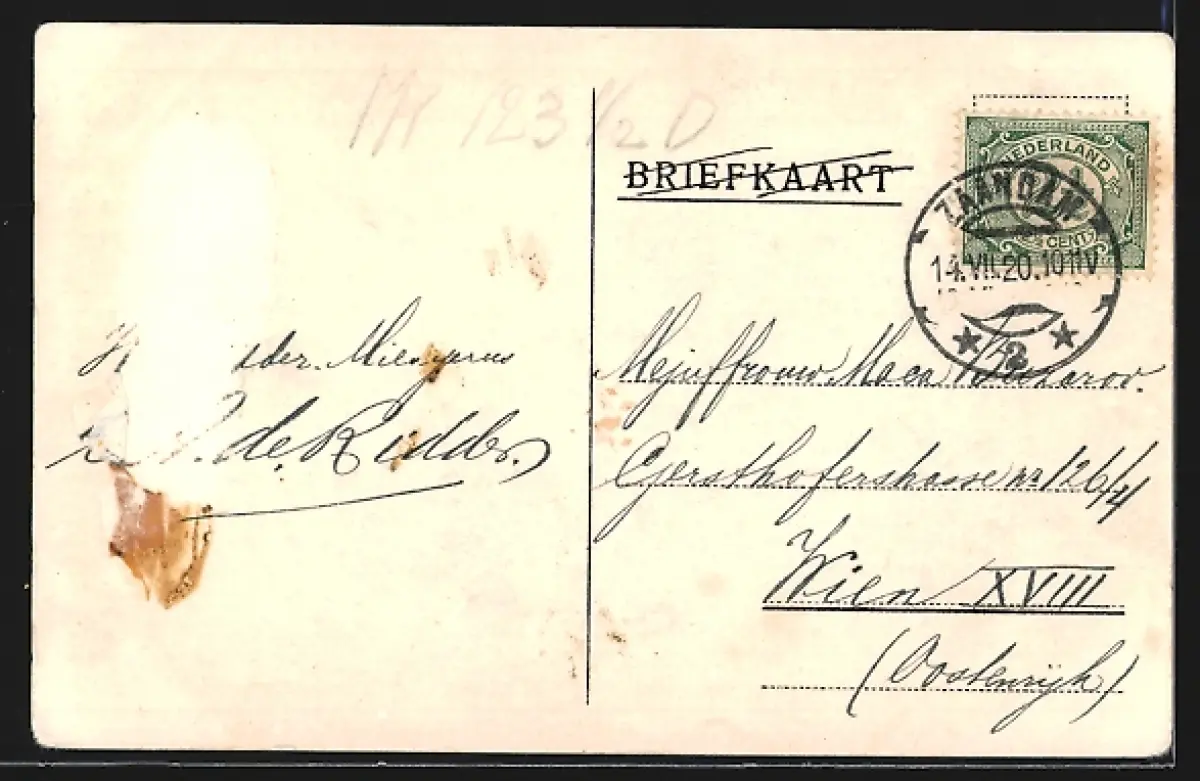 123 1/2 D
BRIEFKAART
NEDERLAND
CENT
ZAANDAM
14.VII.20.10 11V
2
de Ridder.
Mejuffrouw
Gersthoferstrasse no 126/4
Wien XVIII
(Oostenrijk)